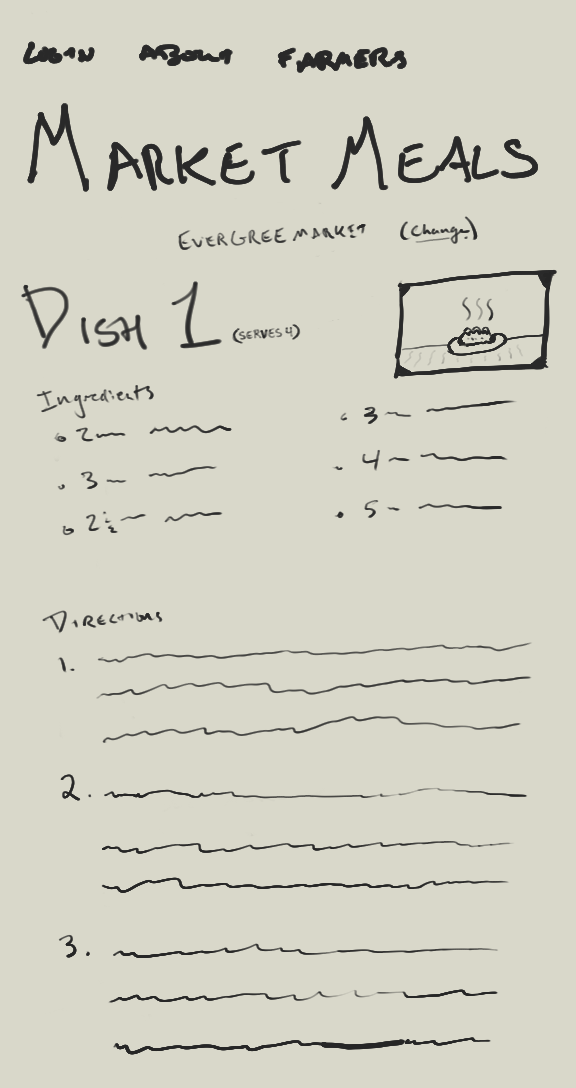 LOGIN ABOUT FARMERS
MARKET MEALS
EVERGREE MARKET (Change)
DISH 1 (SERVES 4)
Ingredients
• 2
• 3
• 2 1/2
• 3
• 4
• 5
DIRECTIONS
1.
2.
3.